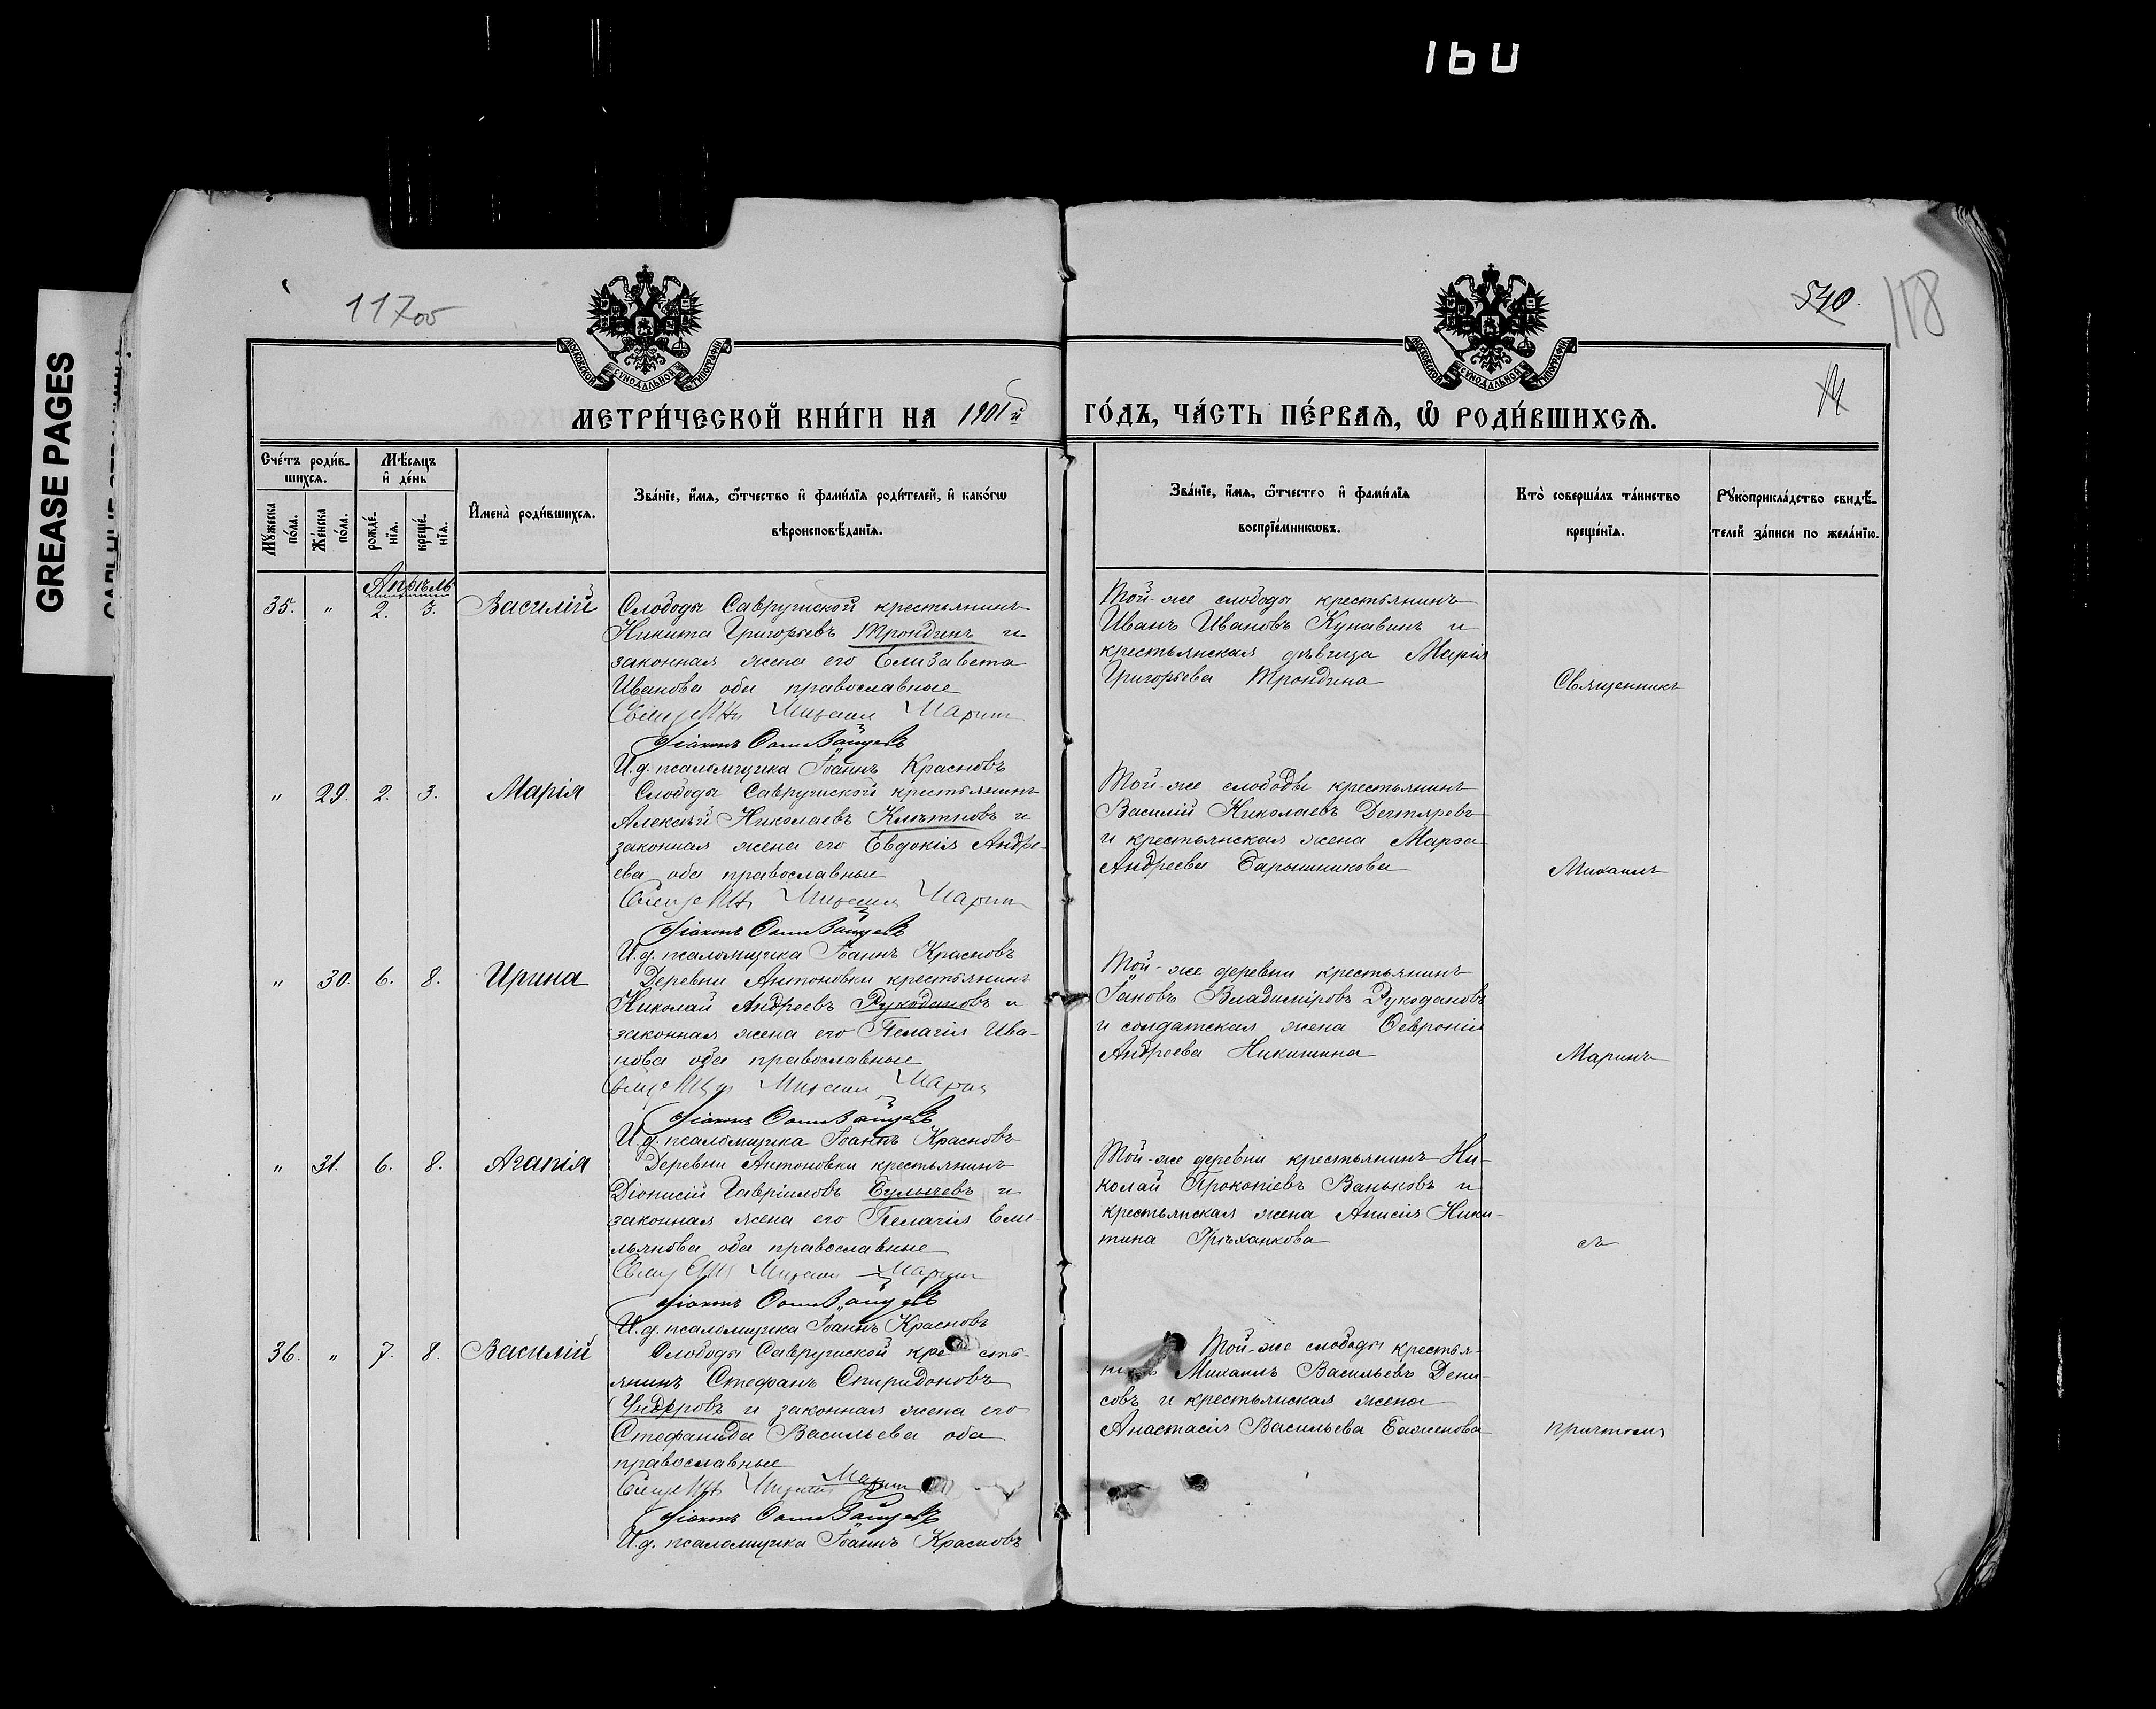 160
GREASE PAGES
117об
540.
118
МОСКОВСКОЙ СѴНОДАЛЬНОЙ ТИПОГРАФІИ
МОСКОВСКОЙ СѴНОДАЛЬНОЙ ТИПОГРАФІИ
МЕТРИ́ЧЕСКОЙ КНИ́ГИ НА 1901й ГО́ДЪ, ЧА́СТЬ ПЕ́РВАѦ, Ѽ РОДИ́ВШИХСѦ.
Сче́тъ роди́в-
шихсѧ.
Мꙋ́жеска по́ла.
Же́нска по́ла.
Мѣ́сѧцъ
и҆ де́нь
рожде́-
нїѧ.
креще́-
нїѧ.
И҆мена̀ роди́вшихсѧ.
Зва́нїе, и҆́мѧ, ѻ҆́тчество и҆ фами́лїѧ роди́телей, и҆ како́гѡ
вѣроисповѣ́данїѧ.
Зва́нїе, и҆́мѧ, ѻ҆́тчество и҆ фами́лїѧ
воспрїе́мникѡвъ.
Кто̀ соверша́лъ та́инство
креще́нїѧ.
Рꙋкоприкла́дство свидѣ́-
телей за́писи по жела́нїю.
Апрѣль
35. " 2. 3. Василій
Слободы Савружской крестьянинъ
Никита Григорьевъ Трондинъ и
законная жена его Елизавета
Иванова оба православные
Михаил Марин
Діаконъ
И.д. псаломщика Іоаннъ Красновъ
Той-же слободы крестьянинъ
Иванъ Ивановъ Купавинъ и
крестьянская дѣвица Марія
Григорьева Трондина
Священникъ
" 29. 2. 3. Марія
Слободы Савружской крестьянинъ
Алексѣй Николаевъ и
законная жена его Евдокія Андре-
ева оба православные
Михаил Марин
Діаконъ
И.д. псаломщика Іоаннъ Красновъ
Той-же слободы крестьянинъ
Василій Николаевъ Дегтяревъ
и крестьянская жена Марѳа
Андреева Барышникова
Михаилъ
" 30. 6. 8. Ирина
Деревни Антоновки крестьянинъ
Николай Андреевъ Рукодановъ и
законная жена его Пелагія Ива-
нова оба православные
Михаил Марин
Діаконъ
И.д. псаломщика Іоаннъ Красновъ
Той-же деревни крестьянинъ
Іаковъ Владиміровъ Рукодановъ
и солдатская жена Ѳевронія
Андреева Никишина
Маринъ
" 31. 6. 8. Агапія
Деревни Антоновки крестьянинъ
Діонисій Гавріиловъ Булычевъ и
законная жена его Пелагія Еми-
льянова оба православные
Михаил Марин
Діаконъ
И.д. псаломщика Іоаннъ Красновъ
Той-же деревни крестьянинъ Ни-
колай Прокопіевъ Ваньковъ и
крестьянская жена Анисія Ники-
тина Грѣханкова
съ
36. " 7. 8. Василій
Слободы Савружской кресть-
янинъ Стефанъ Спиридоновъ
и законная жена его
Стефанида Васильева оба
православные
Михаил Марин
Діаконъ
И.д. псаломщика Іоаннъ Красновъ
Той-же слободы крестья-
нинъ Михаилъ Васильевъ Дени-
совъ и крестьянская жена
Анастасія Васильева Баженова
причтомъ